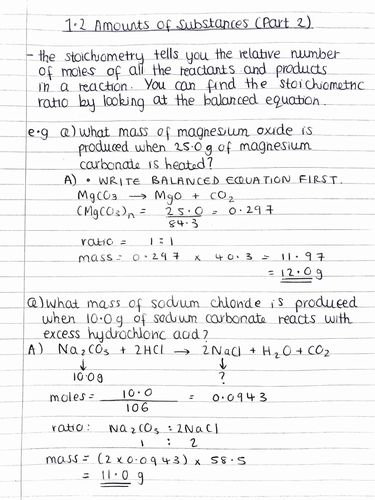 1.2 Amounts of Substances (Part 2)
- the stoichometry tells you the relative number
of moles of all the reactants and products
in a reaction. You can find the stoichiometric
ratio by looking at the balanced equation.
e.g Q) what mass of magnesium oxide is
produced when 25.0g of magnesium
carbonate is heated?
A) • WRITE BALANCED EQUATION FIRST.
MgCO3 → MgO + CO2
(MgCO3)n = 25.0 = 0.297
84.3
ratio = 1:1
mass = 0.297 × 40.3 = 11.97
= 12.0g
Q) What mass of sodium chloride is produced
when 10.0g of sodium carbonate reacts with
excess hydrochloric acid?
A) Na2CO3 + 2HCl → 2NaCl + H2O + CO2
↓ ↓
10.0g ?
moles = 10.0 = 0.0943
106
ratio: Na2CO3 : 2NaCl
1 : 2
mass = (2 × 0.0943) × 58.5
= 11.0g